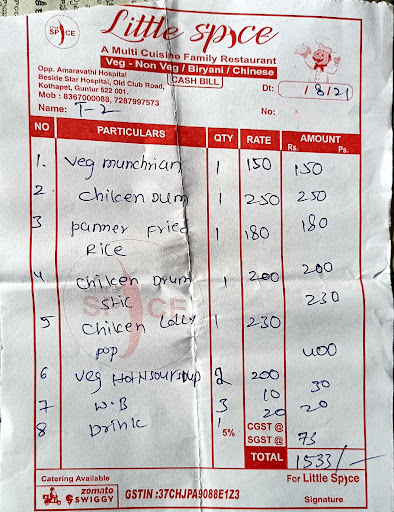 SPICE
Little Spice
A Multi Cuisine Family Restaurant
Veg - Non Veg / Biryani / Chinese
Opp. Amaravathi Hospital
Beside Star Hospital, Old Club Road,
Kothapet, Guntur 522 001.
Mob : 8367000088, 7287997573
CASH BILL
Dt: 1/8/21
Name: T-2
No:
NO PARTICULARS QTY RATE AMOUNT
Rs. Ps.
1. Veg munchrian 1 150 150
2 chilcen Dum 1 250 250
3 panner Fried 1 180 180
Rice
4 Chilcen Drum 1 200 200
stic
5 Chilcen Lolly 1 230 230
pop
6 veg Hot N sour soup 2 200 400
7 W.B 3 10 30
8 Drink 1 20 20
5% CGST @
SGST @ 73
TOTAL 1533/-
Catering Available
zomato
SWIGGY
GSTIN :37CHJPA9088E1Z3
For Little Spice
Signature